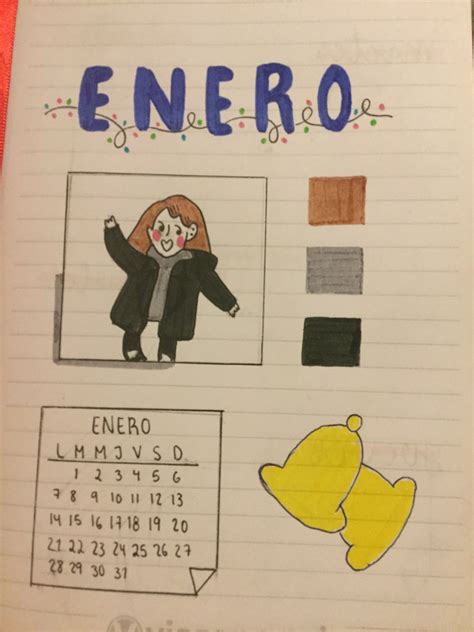 ENERO
ENERO
L M M J V S D.
1 2 3 4 5 6
7 8 9 10 11 12 13
14 15 16 17 18 19 20
21 22 23 24 25 26 27
28 29 30 31